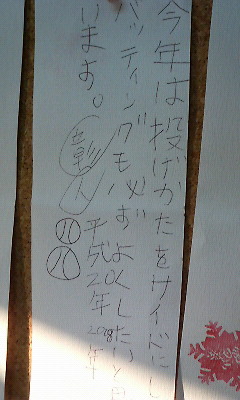 今年は投げかたをサイ心にし
バッティングも必ずよくしたいと思
います。
彰人
平成20年 2008年